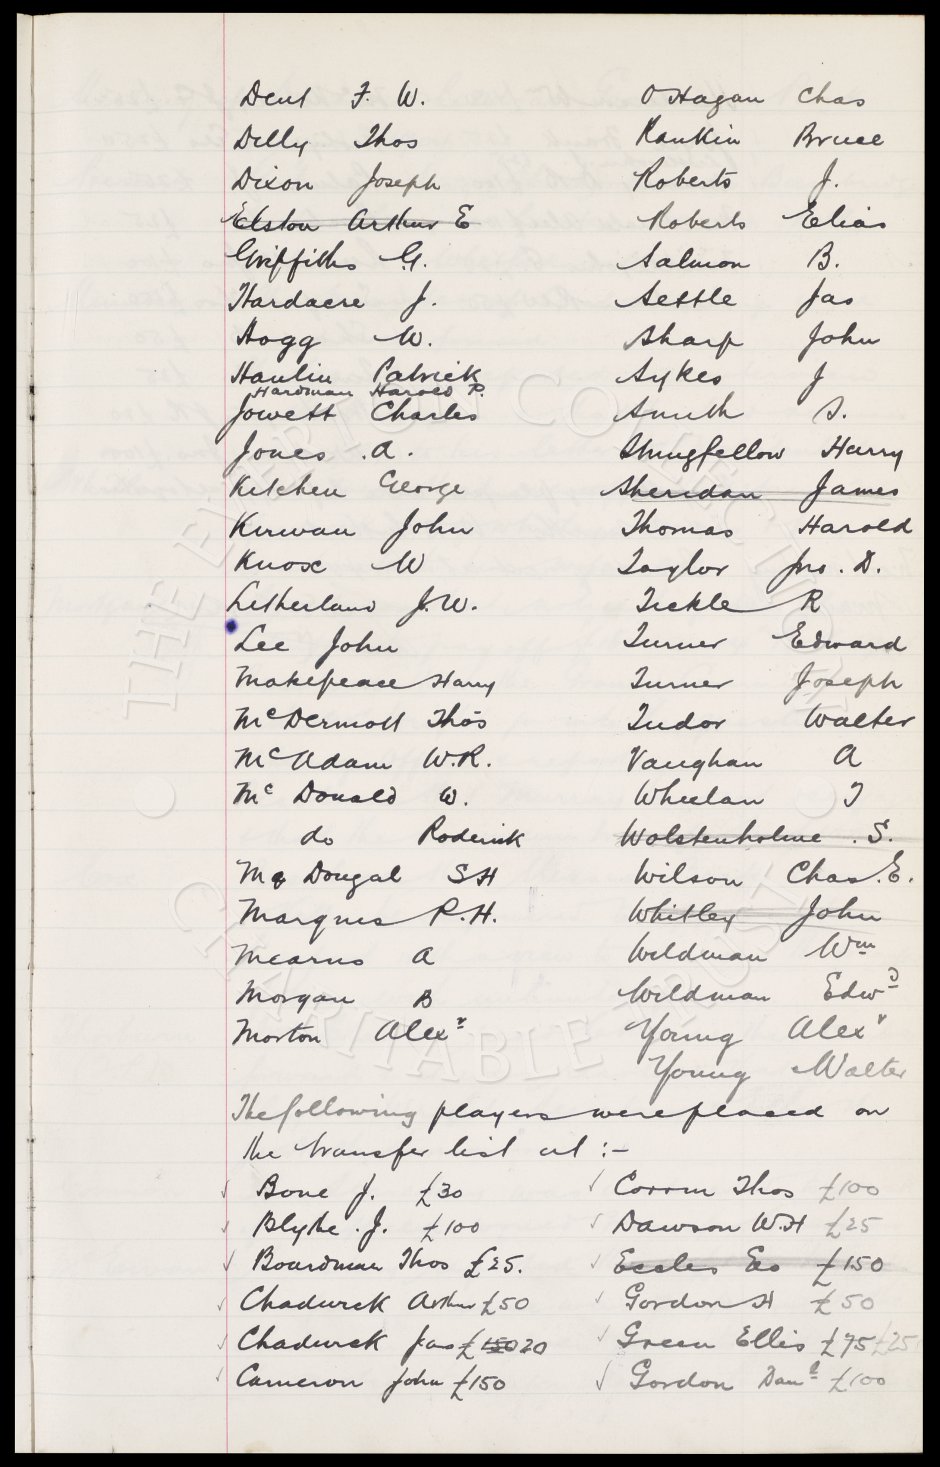 Dent F. W. O'Hagan Chas
Dilly Thos Rankin Bruce
Dixon Joseph Roberts J.
Elston Arthur E Roberts Elias
Griffiths G. Salmon B.
Hardacre J. Settle Jas
Hogg W. Sharp John
Hanlin Patrick Sykes J
Hardman Harold P.
Jowett Charles Smith S.
Jones .A. Stringfellow Harry
Kitchen George Sheridan James
Kirwan John Thomas Harold
Knox W Taylor Jno. D.
Letherland J.W. Tickle R
Lee John Turner Edward
Makepeace Harry Turner Joseph
McDermott Thos Tudor Walter
McAdam W.R. Vaughan A
Mc Donald W. Wheelan T
do Roderick Wolstenholme . S.
Mc Dougal SH Wilson Chas.E.
Marquis P.H. Whitley John
Mearns A Wildman Wm
Morgan B Wildman Edwd
Morton Alexr Young Alexr
Young Walter
The following players were placed on
the transfer list at :-
Bone J. £30 Corrin Thos £100
Blythe . J. £100 Dawson W.H £25
Boardman Thos £25. Eccles Eo £150
Chadwick Arthur £50 Gordon H £50
Chadwick Jas £150 20 Green Ellis £75 £25
Cameron John £150 Gordon Danl £100
THE EVERTON COLLECTION
CHARITABLE TRUST